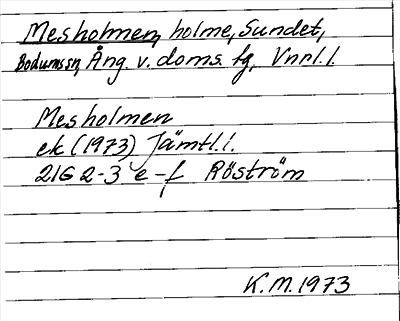 Mesholmen, holme, Sundet,
Bodumssn, Ång. v. doms. fg, Vnrl. l.
Mesholmen
ek (1973) Jämtl. l.
21G 2-3 e-f Röström
K.M. 1973